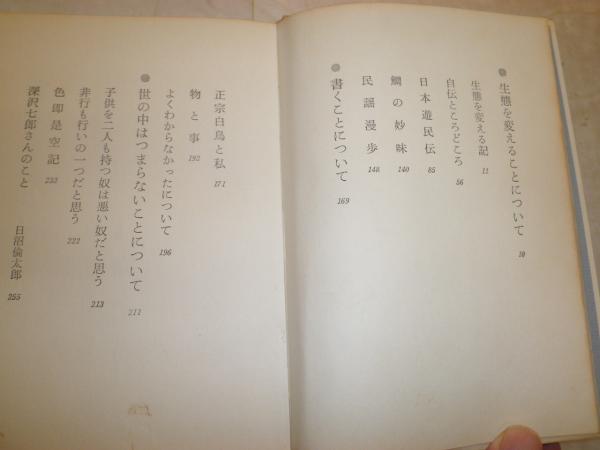 ● 生態を変えることについて 10
生態を変える記 11
自伝ところどころ 56
日本遊民伝 85
鯛の妙味 140
民謡漫歩 148
● 書くことについて 169
正宗白鳥と私 171
物と事 192
よくわからなかったについて 196
● 世の中はつまらないことについて 211
子供を二人も持つ奴は悪い奴だと思う 213
非行も行いの一つだと思う 222
色即是空記 232
深沢七郎さんのこと 日沼倫太郎 255